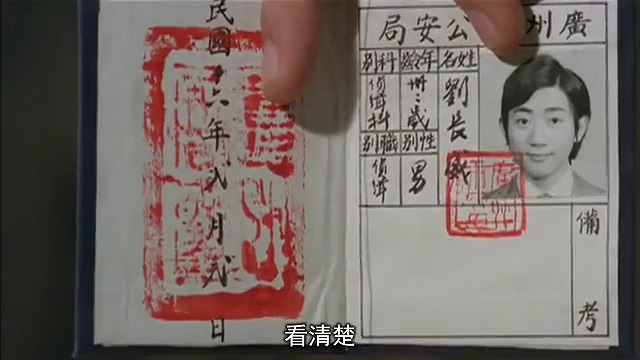 民國十六年 月 日
廣州 公安局
姓名
劉長
年齡
卅 歲
性別
男
科別
偵緝科
職別
偵緝
備考
看清楚